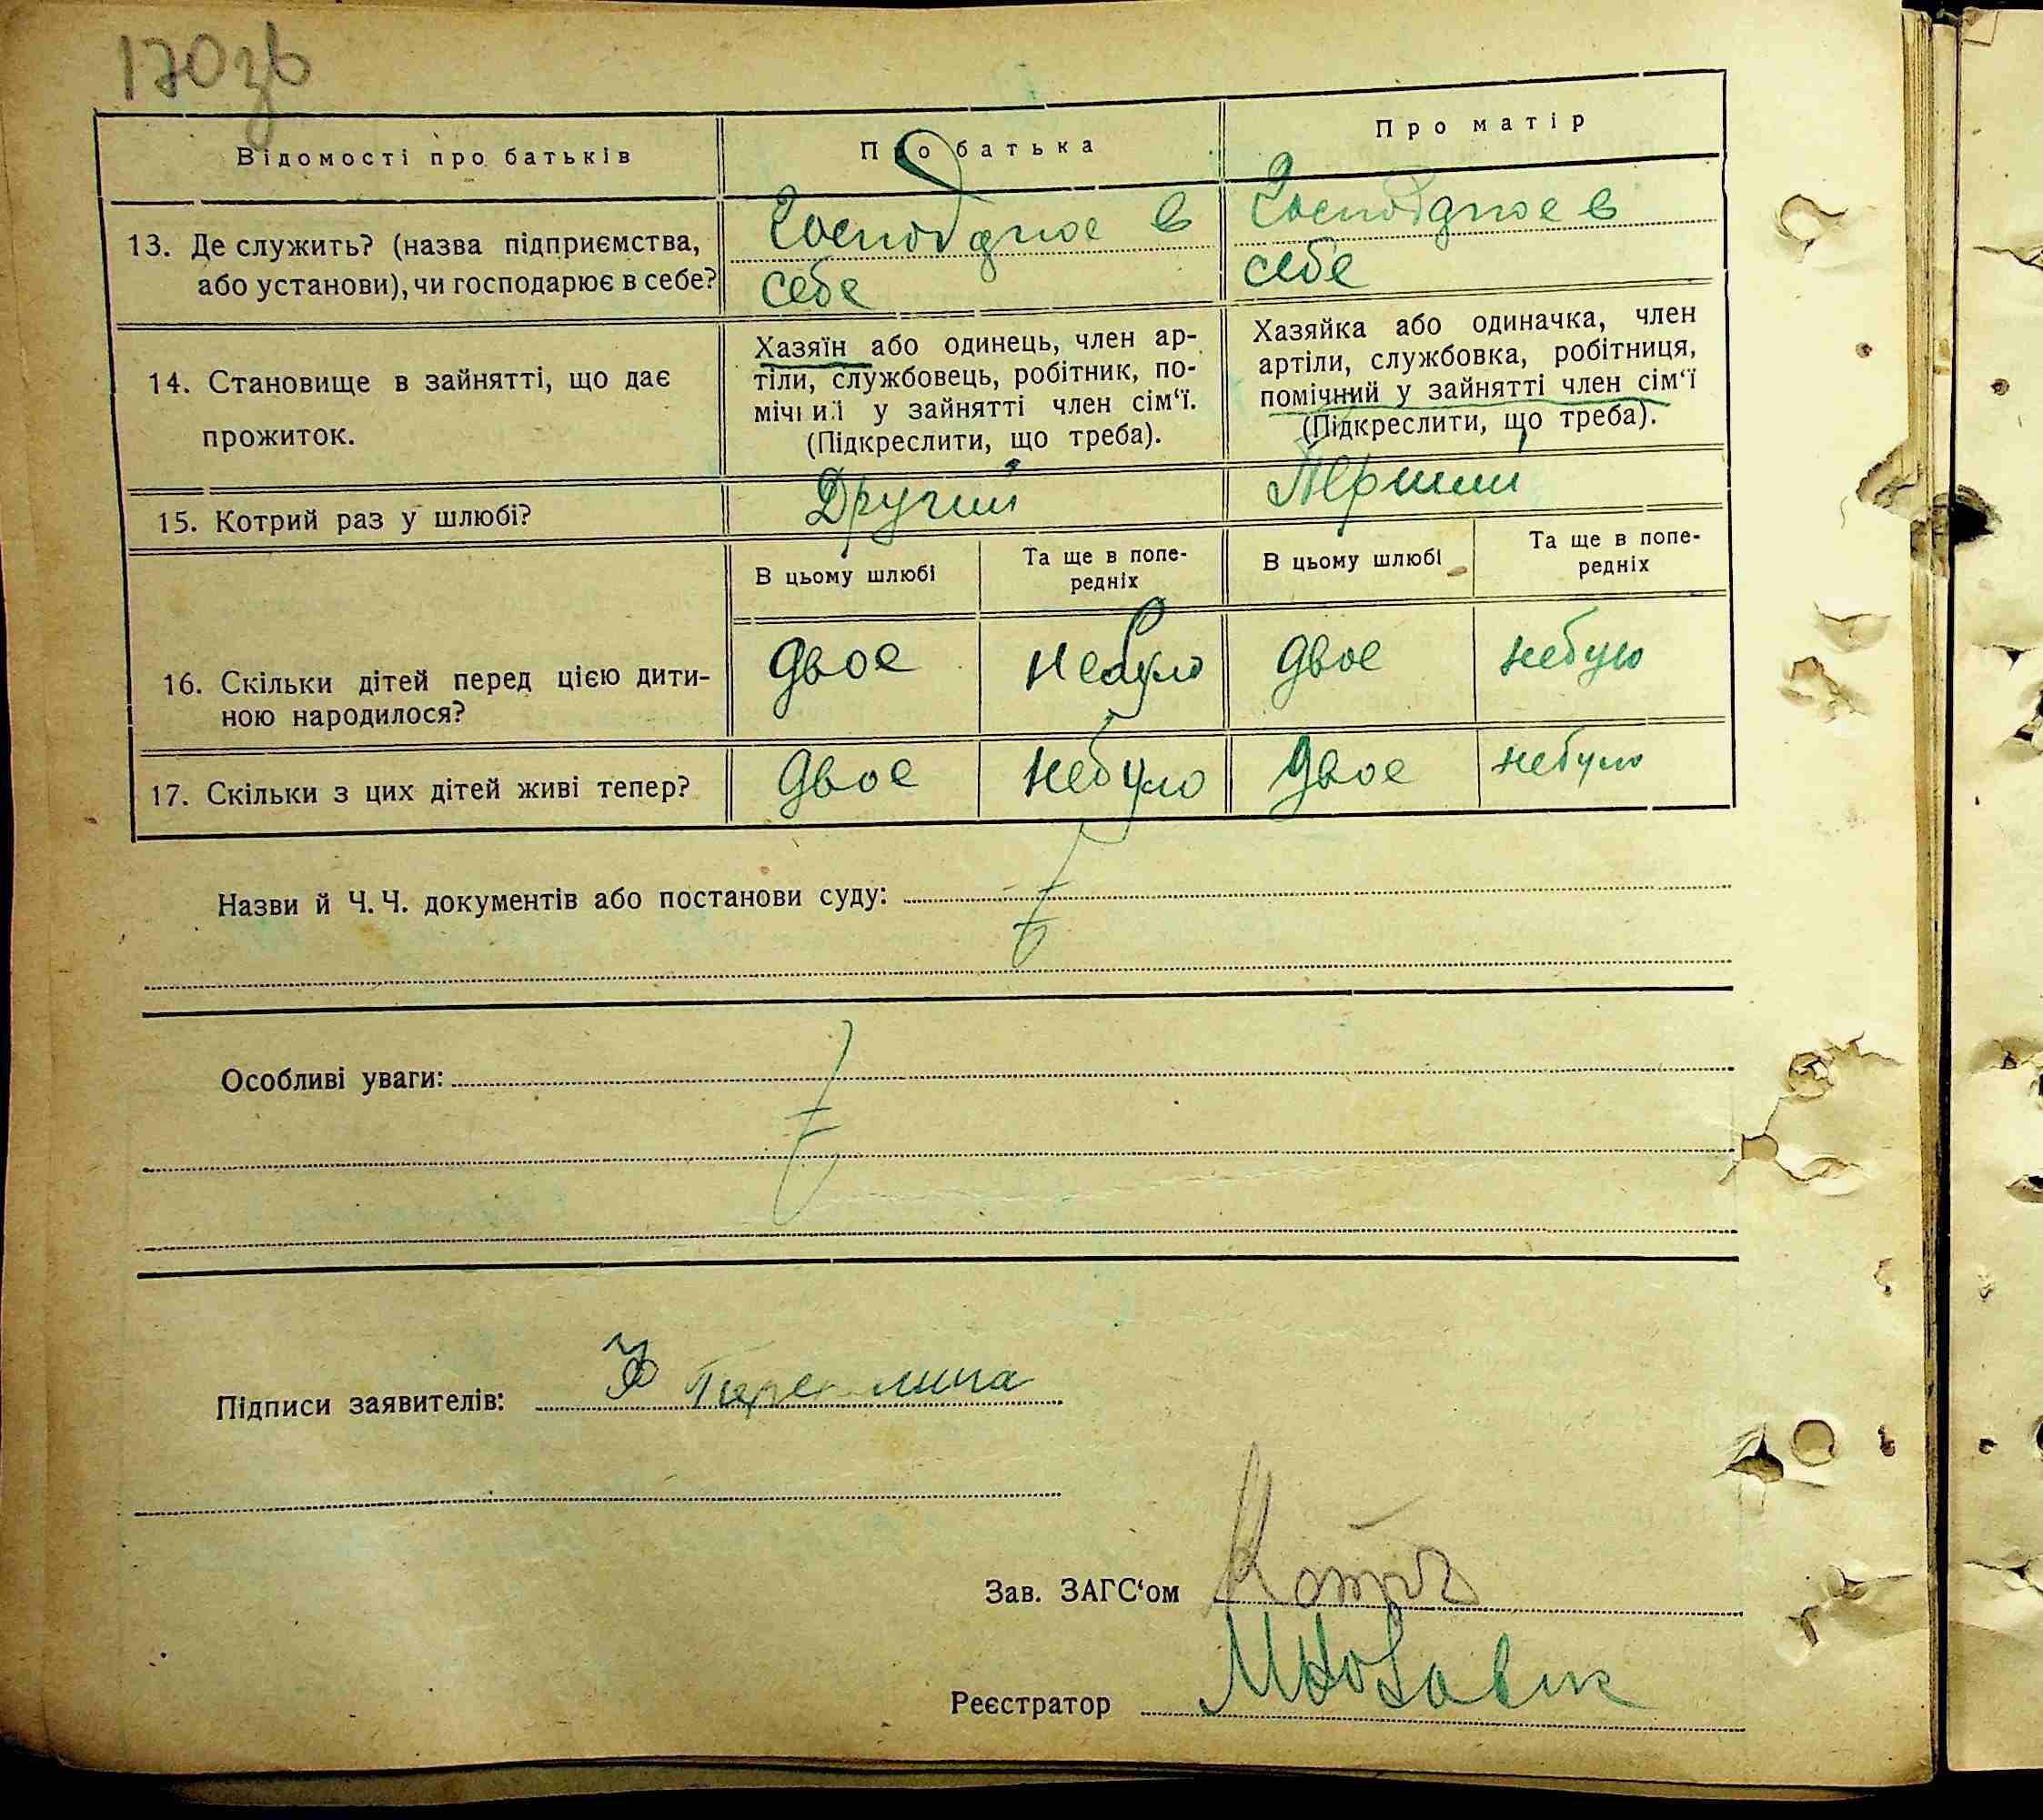 170зв
Відомості про батьків
Про батька
Про матір
13. Де служить? (назва підприємства,
або установи), чи господарює в себе?
Господрює в
себе
Господрює в
себе
14. Становище в зайнятті, що дає
прожиток.
Хазяїн або одинець, член ар-
тіли, службовець, робітник, по-
мічний у зайнятті член сім‘ї.
(Підкреслити, що треба).
Хазяйка або одиначка, член
артіли, службовка, робітниця,
помічний у зайнятті член сім‘ї
(Підкреслити, що треба).
15. Котрий раз у шлюбі?
Другий
Перший
В цьому шлюбі
Та ще в попе-
редніх
В цьому шлюбі
Та ще в попе-
редніх
16. Скільки дітей перед цією дити-
ною народилося?
двое
небуло
двое
небуло
17. Скільки з цих дітей живі тепер?
двое
небуло
двое
небуло
Назви й Ч. Ч. документів або постанови суду:
Особливі уваги:
Підписи заявителів:
Зав. ЗАГС‘ом
Реєстратор